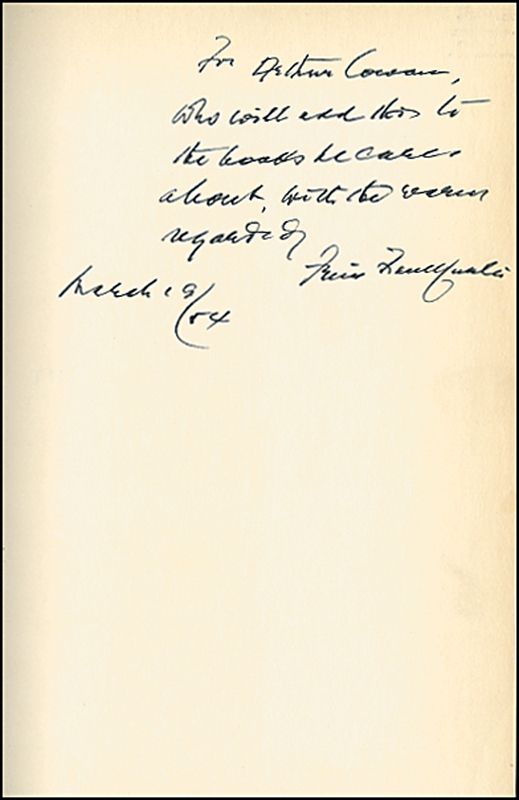 For Arthur Cowan,
who will add this to
the books he cares
about, with the warm
regards of
Felix Frankfurter
March 19/54